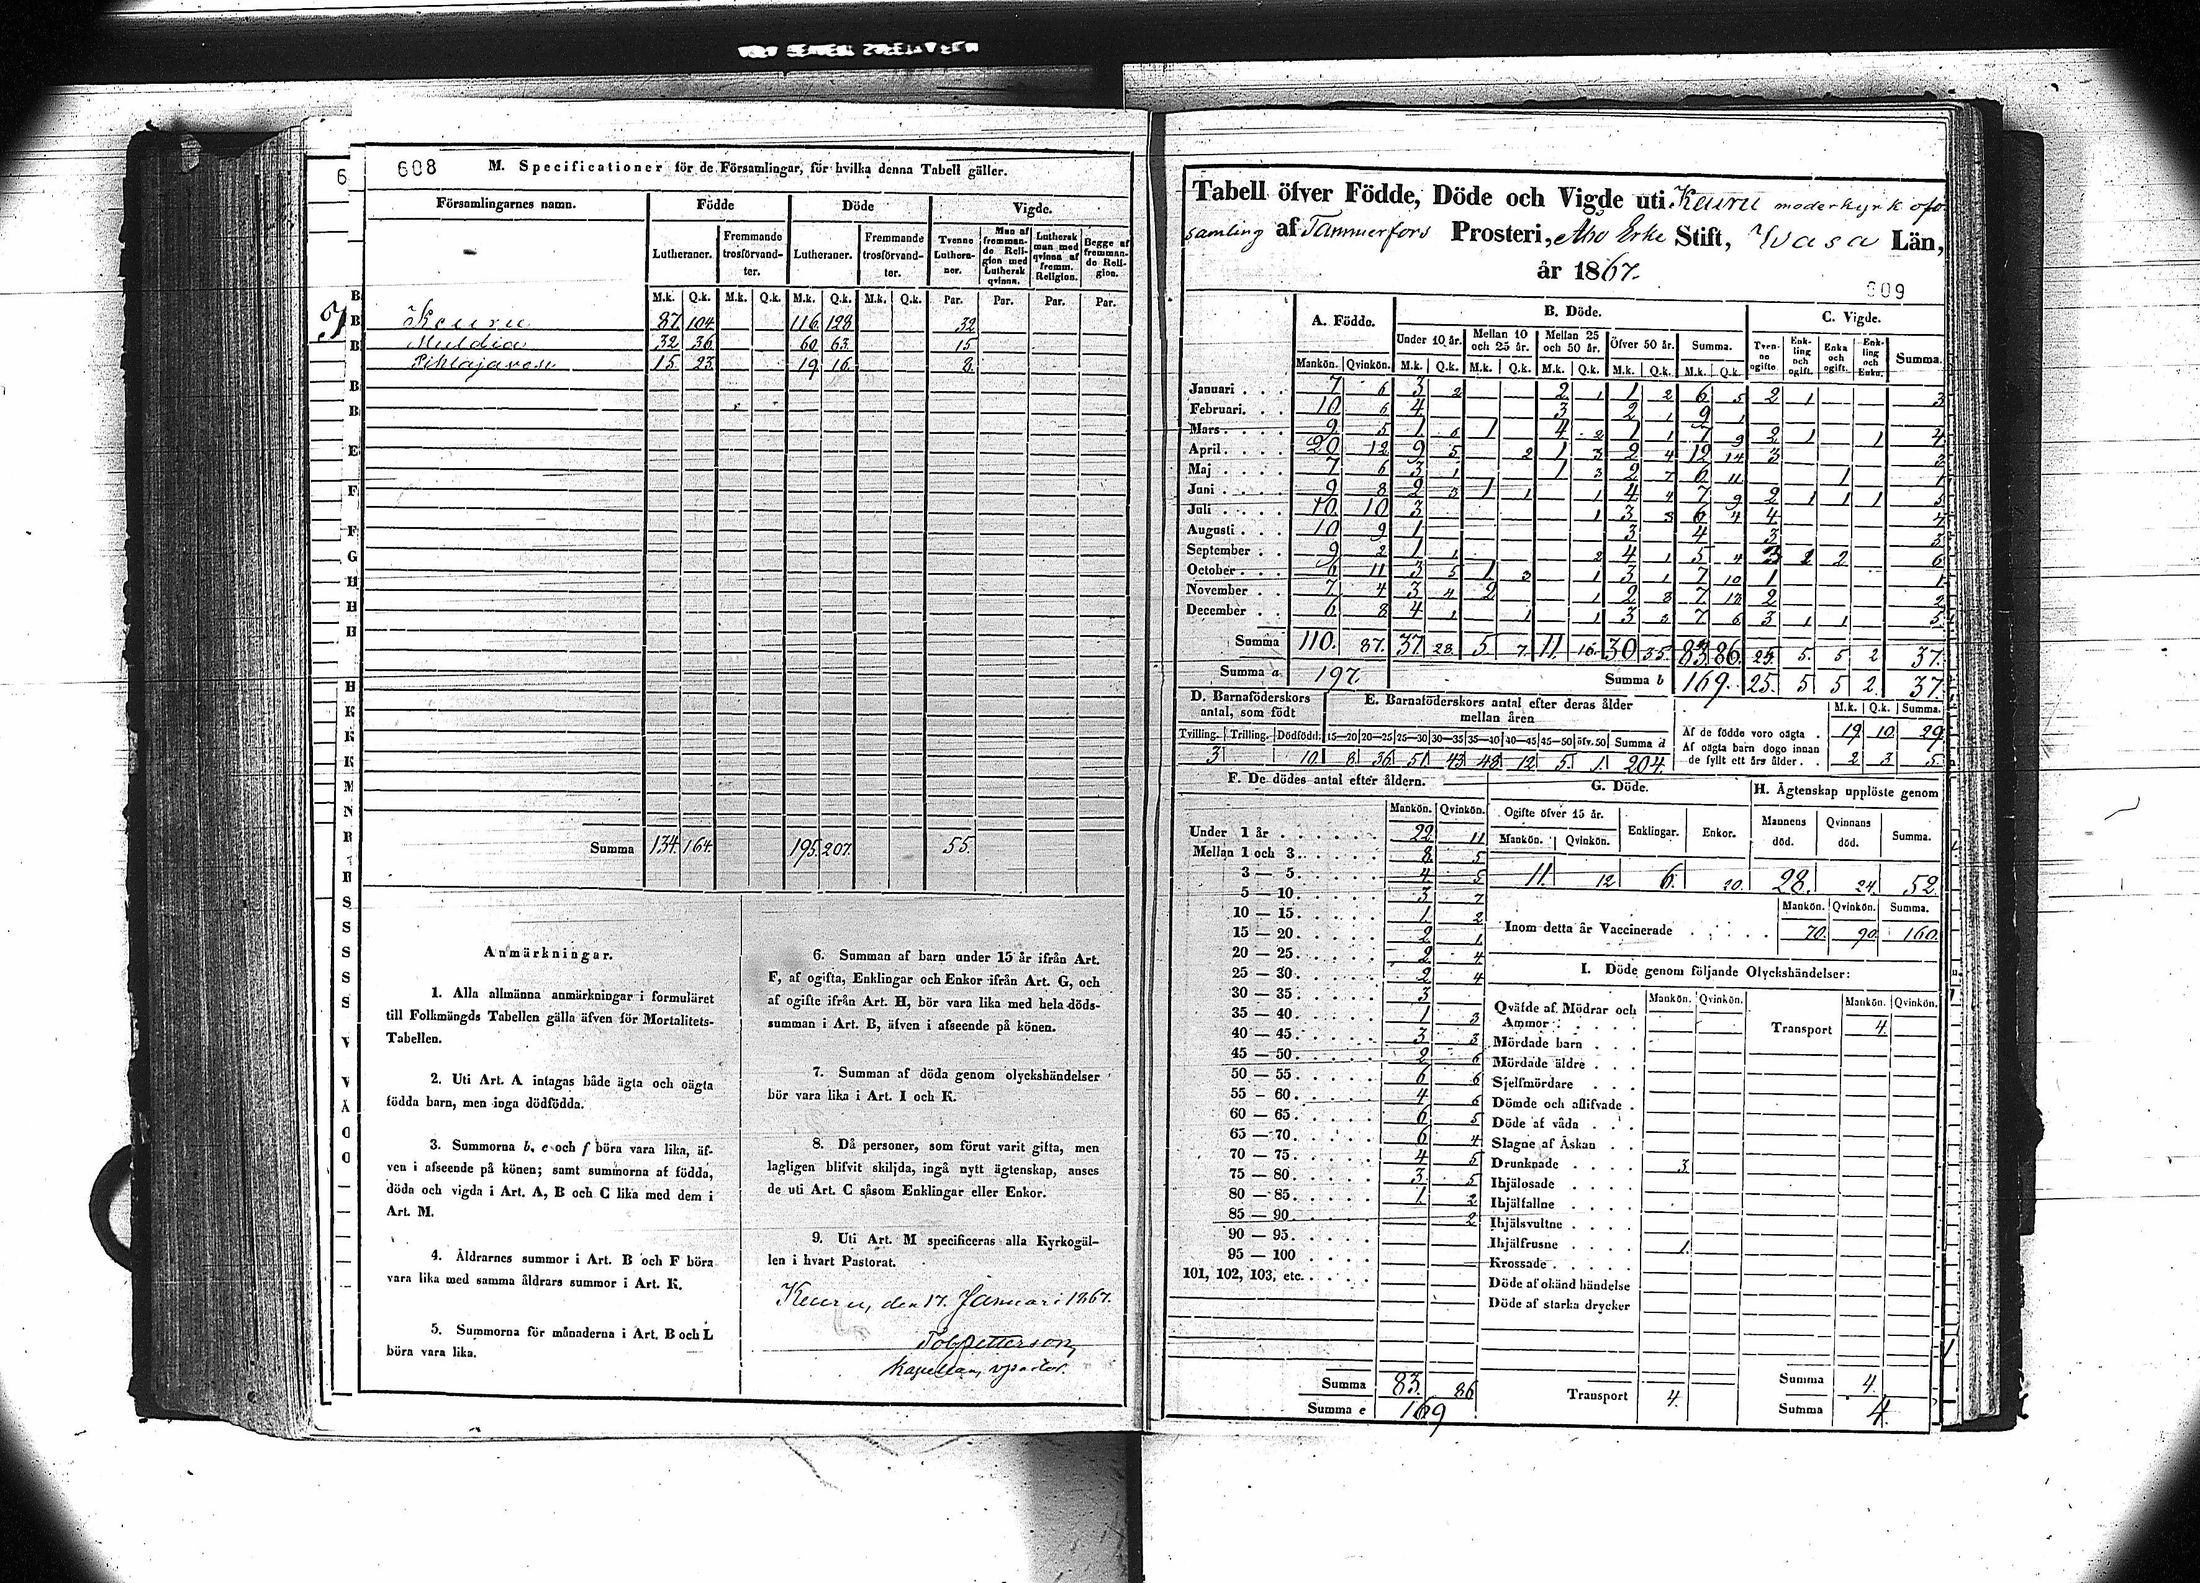 608 M. Specificationer för de Församlingar, för hvilka denna Tabell gäller.
Församlingarnes namn. Födde Döde Vigde.
Lutheraner. Fremmande trosförvandter. Lutheraner. Fremmande trosförvandter. Tvenne Lutheraner. Man af fremmande Religion med Luthersk qvinna. Luthersk man med qvinna af fremm. Religion. Begge af fremmande Religion.
M.k. Q.k. M.k. Q.k. M.k. Q.k. M.k. Q.k. Par. Par. Par. Par.
Keuru 87 104 116 128 32
Muldia 32 36 60 63 15
Pihlajavesi 15 23 19 16 8
Summa 134 164 195 207 55
Anmärkningar.
1. Alla allmänna anmärkningar i formuläret
till Folkmängds Tabellen gälla äfven för Mortalitets-
Tabellen.
2. Uti Art. A intagas både ägta och oägta
födda barn, men inga dödfödda.
3. Summorna b, e och f böra vara lika, äf-
ven i afseende på könen; samt summorna af födda,
döda och vigda i Art. A, B och C lika med dem i
Art. M.
4. Åldrarnes summor i Art. B och F böra
vara lika med samma åldrars summor i Art. K.
5. Summorna för månaderna i Art. B och L
böra vara lika.
6. Summan af barn under 15 år ifrån Art.
F, af ogifta, Enklingar och Enkor ifrån Art. G, och
af ogifte ifrån Art. H, bör vara lika med hela döds-
summan i Art. B, äfven i afseende på könen.
7. Summan af döda genom olyckshändelser
bör vara lika i Art. I och K.
8. Då personer, som förut varit gifta, men
lagligen blifvit skiljda, ingå nytt ägtenskap, anses
de uti Art. C såsom Enklingar eller Enkor.
9. Uti Art. M specificeras alla Kyrkogäl-
len i hvart Pastorat.
Keuru, den 17. Januari 1867.
Petterson,
Kapellan, v pastor.
Tabell öfver Födde, Döde och Vigde uti Keuru moderkyrkofor
samling af Tammerfors Prosteri, Åbo Erke Stift, Wasa Län,
år 1867.
609
A. Födde. B. Döde. C. Vigde.
Under 10 år. Mellan 10 och 25 år. Mellan 25 och 50 år. Öfver 50 år. Summa. Tvenne ogifte. Enkling och ogift. Enka och ogift. Enkling och Enka. Summa.
Mankön. Qvinkön. M.k. Q.k. M.k. Q.k. M.k. Q.k. M.k. Q.k. M.k. Q.k.
Januari 7 6 3 2 2 1 1 2 6 5 2 1 3
Februari 10 6 4 3 2 1 9 1
Mars 9 5 1 6 1 4 2 1 1 7 9 2 1 1 4
April 20 12 9 5 2 1 3 2 4 12 14 3 3
Maj 7 6 3 1 1 3 2 7 6 11 1 1
Juni 9 8 2 3 1 1 1 4 4 7 9 2 1 1 1 5
Juli 10 10 3 1 3 3 6 4 4 4
Augusti 10 9 1 3 4 3 3
September 9 2 1 1 2 4 1 5 4 2 6
October 6 11 3 5 1 3 1 3 1 7 10 1 1
November 7 4 3 4 2 1 2 8 7 13 2 2
December 6 8 4 1 1 1 3 3 7 6 3 1 1 5
Summa 110. 87. 37 28 5 7. 11. 16. 30 35. 83 86. 25. 5. 5 2 37.
Summa a 197. Summa b 169. 25. 5 5 2. 37.
D. Barnaföderskors antal, som födt
E. Barnaföderskors antal efter deras ålder mellan åren
Tvilling. Trilling. Dödfödd. 15—20 20—25 25—30 30—35 35—40 40—45 45—50 öfv. 50 Summa d
3 10 8 36 51 43 48 12 5 1 204.
M.k. Q.k. Summa.
Af de födde voro oägta 19 10 29
Af oägta barn dogo innan de fyllt ett års ålder 2 3 5
F. De dödes antal efter åldern.
Mankön. Qvinkön.
Under 1 år 22 11
Mellan 1 och 3 8 5
3 — 5 4 5
5 — 10 3 7
10 — 15 1 2
15 — 20 2 1
20 — 25 2 4
25 — 30 2 4
30 — 35 3
35 — 40 1 3
40 — 45 3 3
45 — 50 2 6
50 — 55 6 6
55 — 60 4 6
60 — 65 6 5
65 — 70 6 4
70 — 75 4 5
75 — 80 3 5
80 — 85 1 2
85 — 90 2
90 — 95
95 — 100
101, 102, 103, etc.
Summa 83. 86
Summa e 169
G. Döde.
Ogifte öfver 15 år. Enklingar. Enkor.
Mankön. Qvinkön.
11 12 6. 20.
H. Ägtenskap upplöste genom
Mannens död. Qvinnans död. Summa.
28. 24. 52
Mankön. Qvinkön. Summa.
Inom detta år Vaccinerade 70 90 160
I. Döde genom följande Olyckshändelser:
Mankön. Qvinkön. Mankön. Qvinkön.
Qväfde af Mödrar och Ammor
Transport 4.
Mördade barn
Mördade äldre
Sjelfmördare
Dömde och aflifvade
Döde af våda
Slagne af Åskan
Drunknade 3
Ihjälosade
Ihjälfallne
Ihjälsvultne
Ihjälfrusne 1
Krossade
Döde af okänd händelse
Döde af starka drycker
Summa 4.
Transport 4. Summa 4.